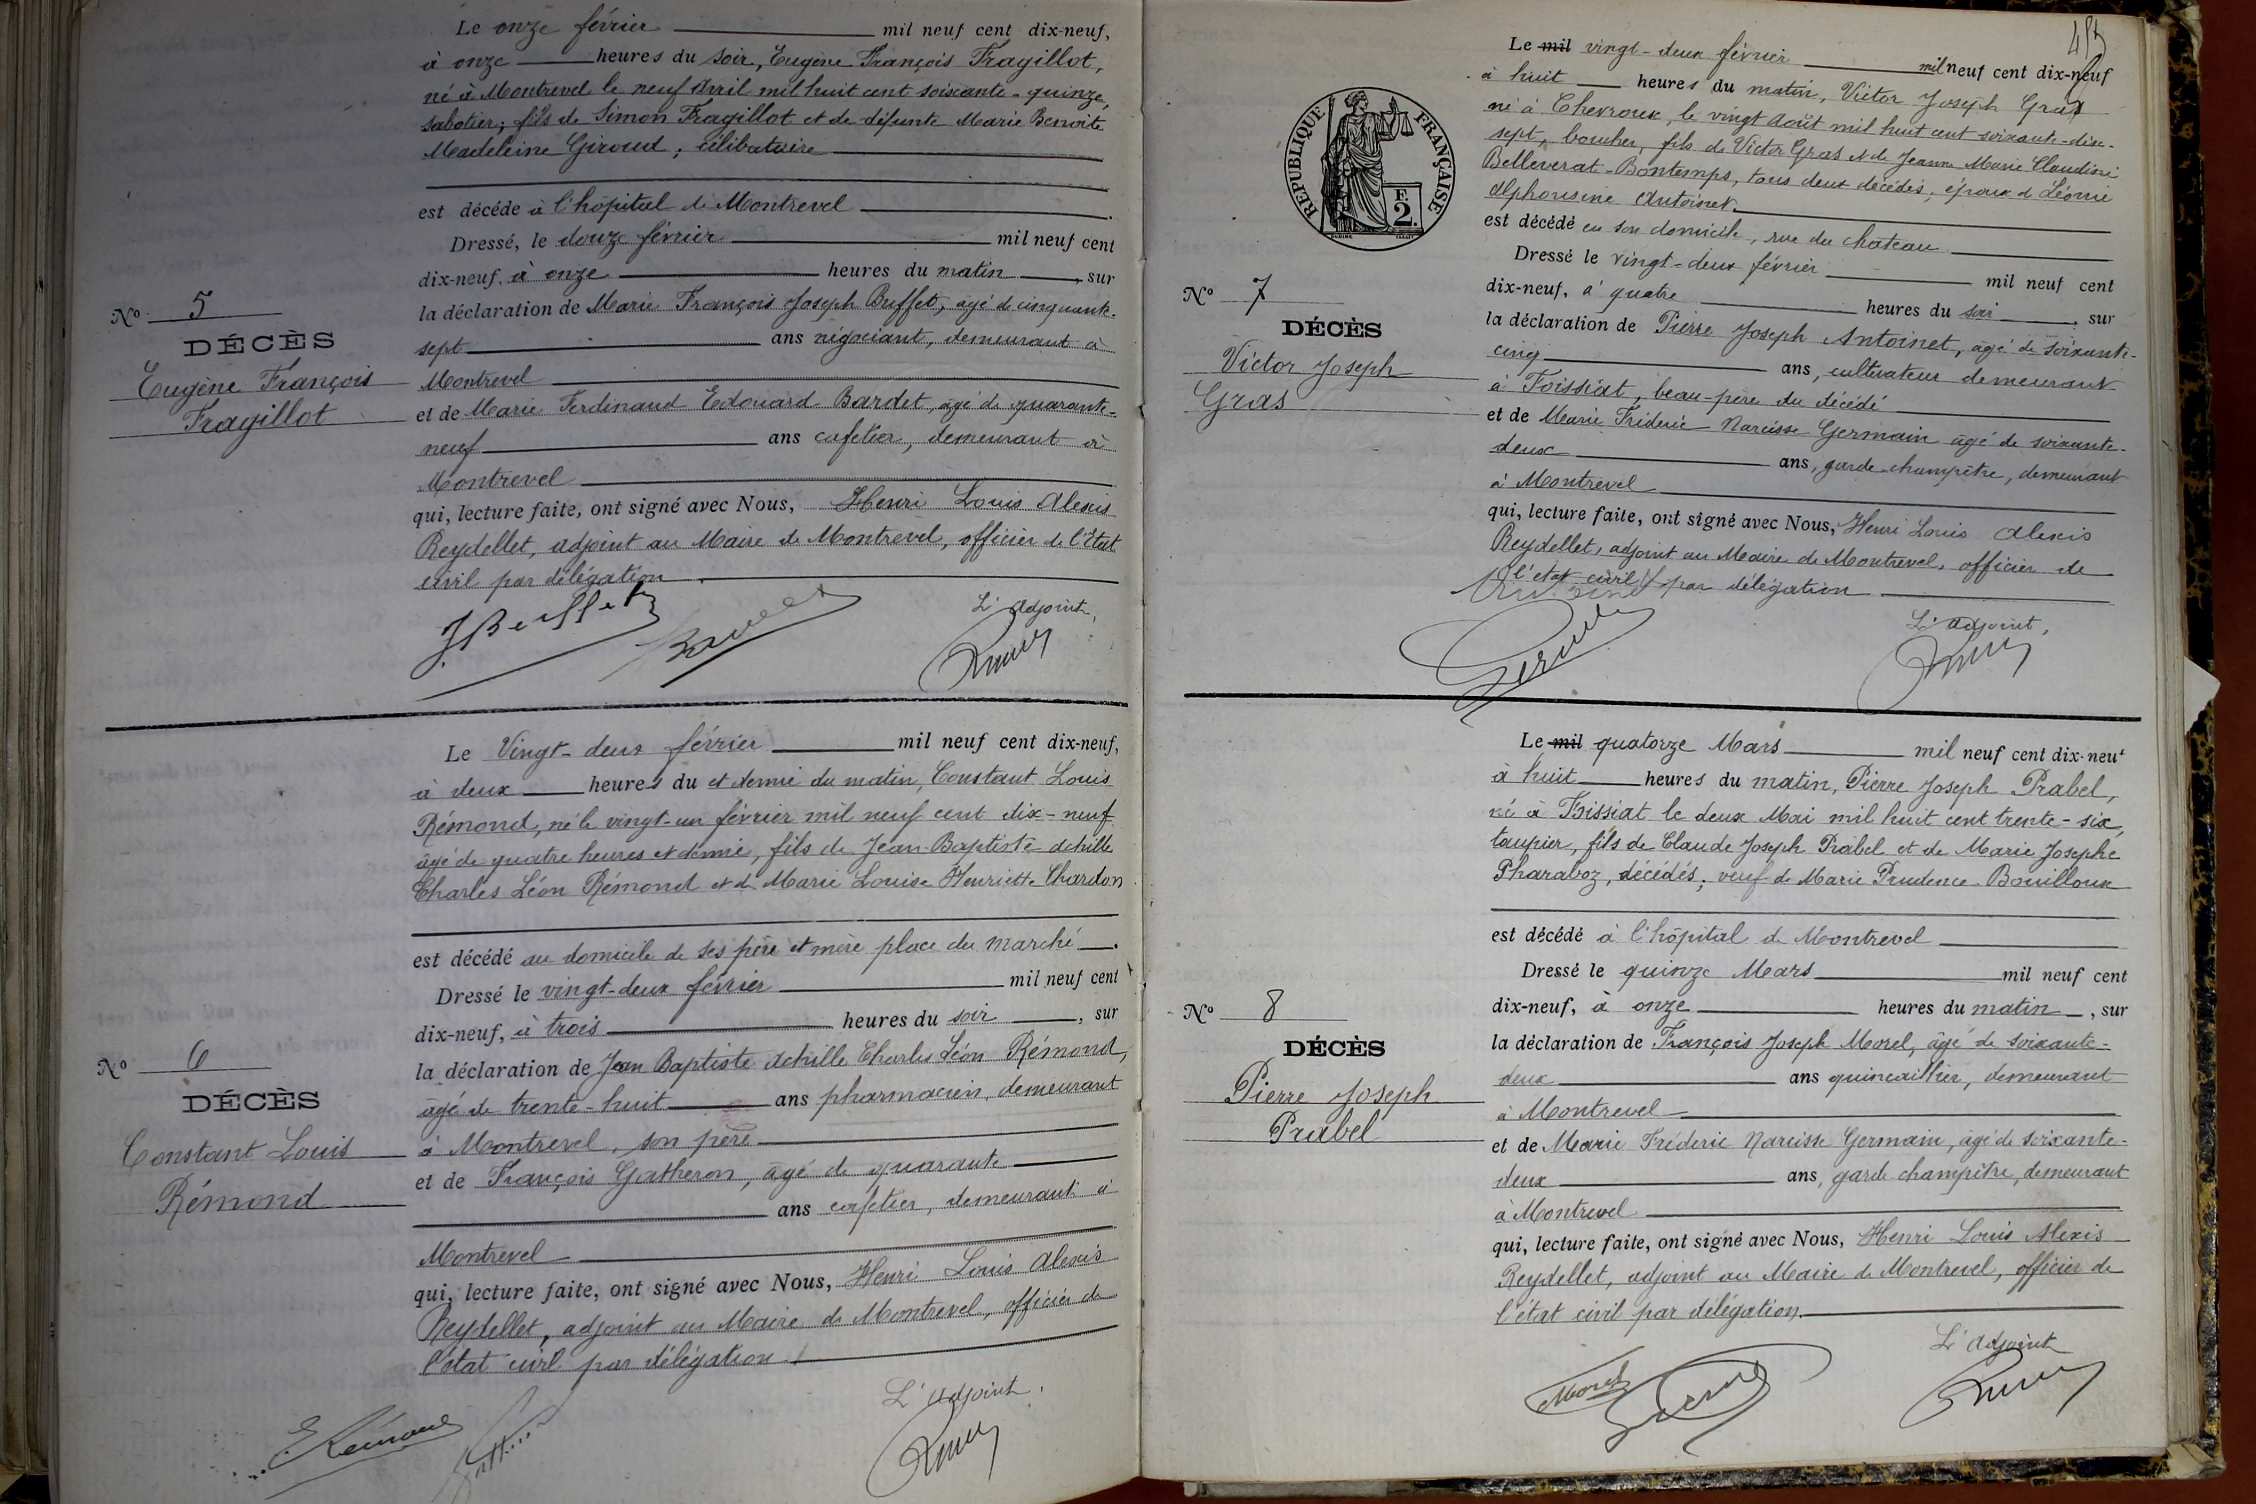 Le onze février mil neuf cent dix-neuf,
à onze heures du soir, Eugène François Fragillot,
né à Montrevel le neuf Avril mil huit cent soixante-quinze,
sabotier; fils de Simon Fragillot et de défunte Marie Benoite
Madeleine Giroud; célibataire
est décédé à l'hôpital de Montrevel
Dressé, le douze février mil neuf cent
dix-neuf, à onze heures du matin, sur
la déclaration de Marie François Joseph Buffet, âgé de cinquante-
sept ans négociant, demeurant à
Montrevel
et de Marie Ferdinand Edouard Bardet, âgé de quarante-
neuf ans cafetier, demeurant à
Montrevel
qui, lecture faite, ont signé avec Nous, Henri Louis Alexis
Reydellet, adjoint au Maire de Montrevel, officier de l'État
civil par délégation.
J. Buffet
L'adjoint,
No 5
DÉCÈS
Eugène François
Fragillot
Le Vingt-deux février mil neuf cent dix-neuf,
à deux heures du et demie du matin, Constant Louis
Rémond, né le vingt-un février mil neuf cent dix-neuf
âgé de quatre heures et demie, fils de Jean-Baptiste Achille
Charles Léon Rémond et de Marie Louise Henriette Chardon
est décédé au domicile de ses père et mère place du marché.
Dressé le vingt-deux février mil neuf cent
dix-neuf, à trois heures du soir, sur
la déclaration de Jean Baptiste Achille Charles Léon Rémond,
âgé de trente-huit ans pharmacien, demeurant
à Montrevel, son père
et de François Gatheron, âgé de quarante
ans cafetier, demeurant à
Montrevel
qui, lecture faite, ont signé avec Nous, Henri Louis Alexis
Reydellet, adjoint au Maire de Montrevel, officier de
l'état civil par délégation
Rémond
L'adjoint.
No 6
DÉCÈS
Constant Louis
Rémond
RÉPUBLIQUE FRANÇAISE
F.
2.
Le mil vingt-deux février mil neuf cent dix-neuf
à huit heures du matin, Victor Joseph Gras
né à Chevroux, le vingt Août mil huit cent soixante-dix-
sept, boucher, fils de Victor Gras et de Jeanne Marie Claudine
Belleverat-Bontemps, tous deux décédés, époux de Léonie
Alphonsine Antoinet.
est décédé en son domicile, rue du château
Dressé le vingt-deux février mil neuf cent
dix-neuf, à quatre heures du soir, sur
la déclaration de Pierre Joseph Antoinet, âgé de soixante-
cinq ans, cultivateur demeurant
à Foissiat, beau-père du décédé
et de Marie Fréderic Narcisse Germain âgé de soixante-
deux ans, garde-champêtre, demeurant
à Montrevel
qui, lecture faite, ont signé avec Nous, Henri Louis Alexis
Reydellet, adjoint au Maire de Montrevel, officier de
l'état civil par délégation
L'adjoint,
No 7
DÉCÈS
Victor Joseph
Gras
Le mil quatorze Mars mil neuf cent dix-neuf
à huit heures du matin, Pierre Joseph Prabel,
né à Foissiat le deux Mai mil huit cent trente-six,
taupier, fils de Claude Joseph Prabel et de Marie Josephe
Pharaboz, décédés; veuf de Marie Prudence Bouilloux
est décédé à l'hôpital de Montrevel
Dressé le quinze Mars mil neuf cent
dix-neuf, à onze heures du matin, sur
la déclaration de François Joseph Morel, âgé de soixante-
deux ans quincaillier, demeurant
à Montrevel
et de Marie Fréderic Narcisse Germain, âgé de soixante-
deux ans, garde champêtre, demeurant
à Montrevel
qui, lecture faite, ont signé avec Nous, Henri Louis Alexis
Reydellet, adjoint au Maire de Montrevel, officier de
l'état civil par délégation.
Morel
L'adjoint
No 8
DÉCÈS
Pierre Joseph
Prabel